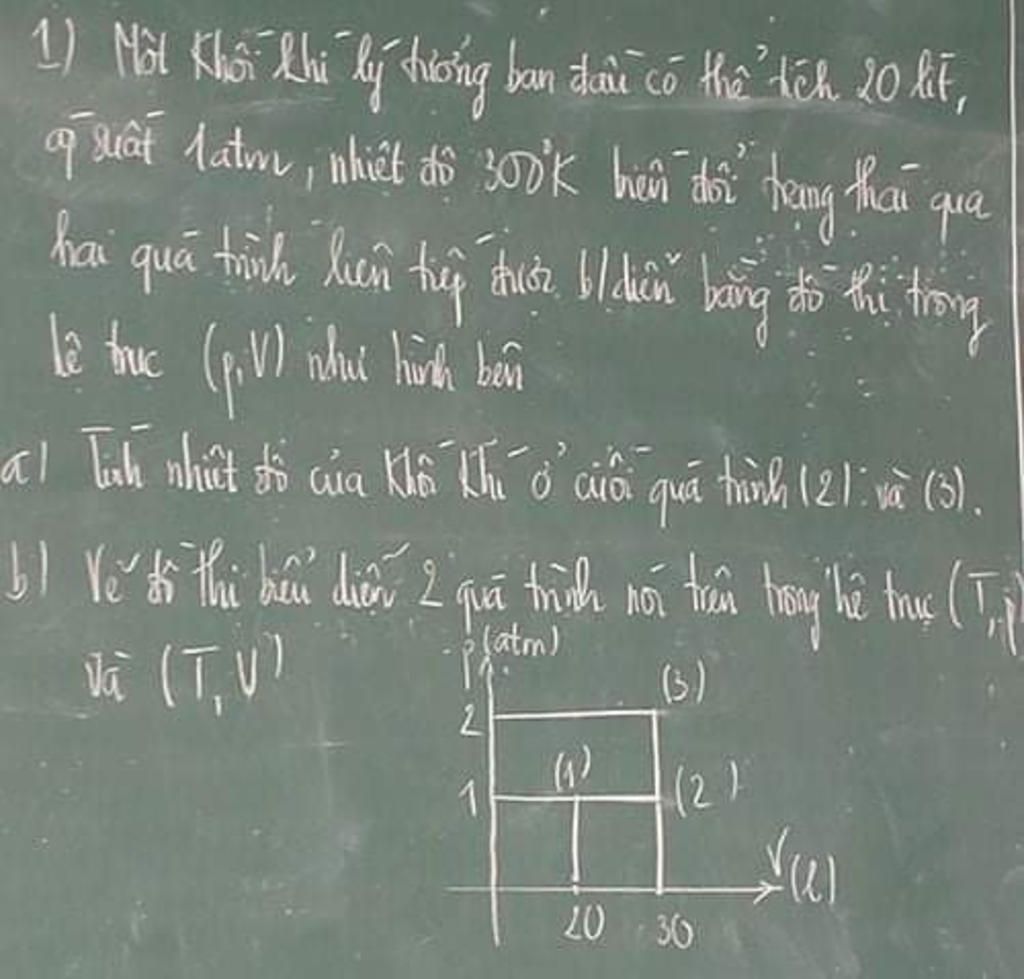 1) Một khối khí lý tưởng ban đầu có thể tích 20 lít,
áp suất 1atm, nhiệt độ 300°K biến đổi trạng thái qua
hai quá trình liên tiếp được b/diễn bằng đồ thị trong
hệ trục (p,V) như hình bên
a) Tính nhiệt độ của khối khí ở cuối quá trình (2) và (3).
b) Vẽ đồ thị biểu diễn 2 quá trình nói trên trong hệ trục (T,p)
và (T,V)
p(atm)
2 (3)
(1)
1 (2)
V(l)
20 30